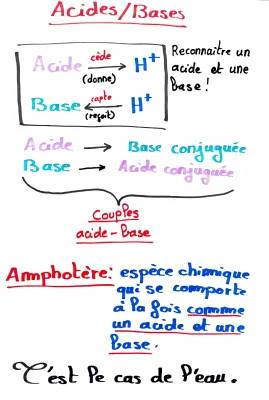 Acides/Bases
Acide cède (donne) H+
Base capte (reçoit) H+
Reconnaître un
acide et une
Base!
Acide → Base conjuguée
Base → Acide conjuguée
Couples
acide-Base
Amphotère: espèce chimique
qui se comporte
à la fois comme
un acide et une
Base.
C'est le cas de l'eau.